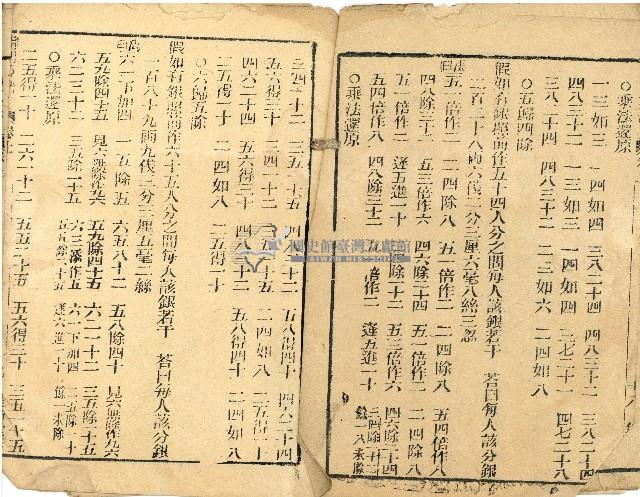 ○乘法還原
一三如三 一四如四 三八二十四 四八三十二 三八二十四
四八三十二 一三如三 一四如四 三七二十一 四七二十八
三八二十四 四八三十二 二三如六 二四如八
○五歸四除
假如有銀照前作五十四人分之問每人該銀若干 荅曰每人該分銀
二百二十八兩六伐二分三厘六毫八絲三忽
法曰五一倍作二 二四除八 五一倍作二 二四除八 五四倍作八
四八除三十二 五三倍作六 四六除二十四 五一倍作二 二四除八
五一倍作二 逢五進一十 四六除二十四 五三倍作六 四六除二十四
五四倍作八 四八除三十二 五一倍作二 逢五進一十 三四除一十二 餘一八未除
○乘法還原
三四一十二 三五一十五 四八三十二 五八得四十 四六二十四
五六得三十 三四一十二 三五一十五 二四如八 二五得一十
四六二十四 五六得三十 四八三十二 五八得四十 二四如八
二五得一十 二四如八 二五得一十
○六歸五除
假如有銀照前作六十五人分之問每人該銀若干 荅曰每人該分銀
一百八十九兩九伐三分三厘五毫二絲
法曰六一下加四 一五除五 六五八十二 五八除四十 見六無除作九六
五九除四十五 見六無除作九六 五九除四十五 六二三十二 三五除一十五
六二三十二 三五除一十五 六三添作五 五五除二十五 六一下加四 逢六進一十 二五除一十 餘一未除
○乘法還原
二五得一十 二六一十二 五五二十五 五六得三十 三五一十五
國史館臺灣文獻館
TAIWAN HISTORICA